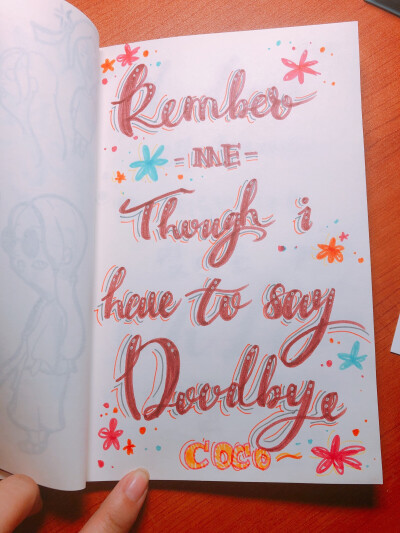 Rember
- ME -
Though i
have to say
Doodbye
COCO~